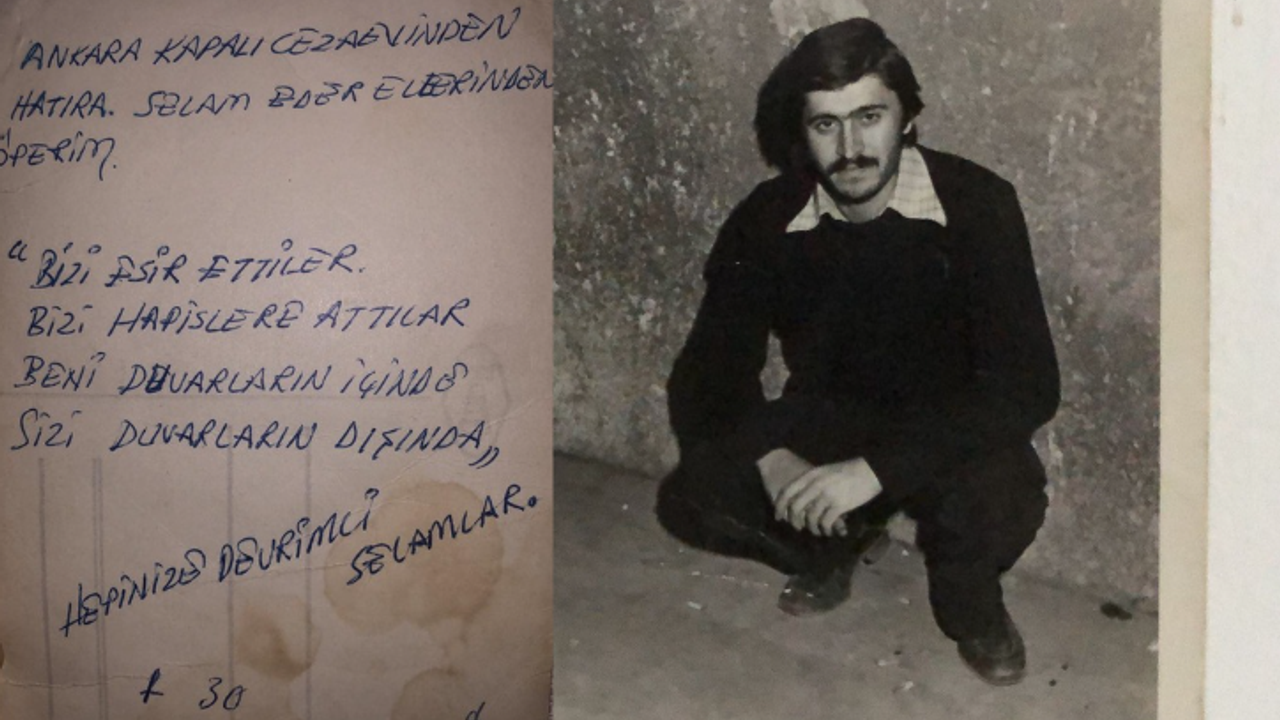 ANKARA KAPALI CEZAEVİNDEN
HATIRA. SELAM EDER ELLERİNDEN
ÖPERİM.
"BİZİ ESİR ETTİLER.
BİZİ HAPİSLERE ATTILAR
BENİ DUVARLARIN İÇİNDE
SİZİ DUVARLARIN DIŞINDA„
HEPİNİZE DEVRİMCİ
SELAMLAR.
30